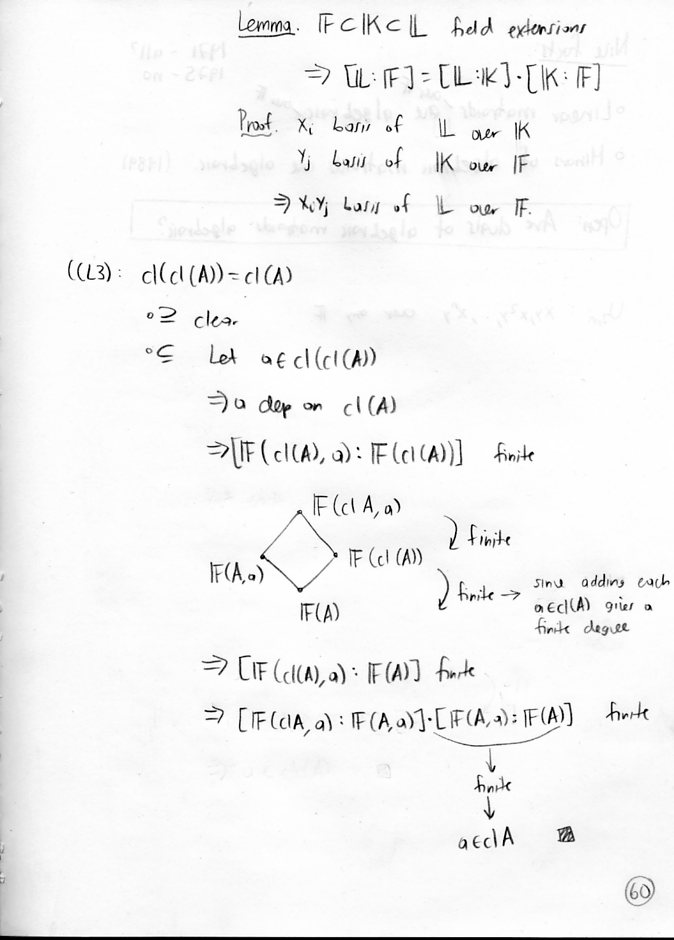 Lemma. 𝔽 ⊂ 𝕂 ⊂ 𝕃 field extensions
⇒ [𝕃:𝔽] = [𝕃:𝕂]·[𝕂:𝔽]
Proof. xᵢ basis of 𝕃 over 𝕂
yⱼ basis of 𝕂 over 𝔽
⇒ xᵢyⱼ basis of 𝕃 over 𝔽.
(CL3): cl(cl(A)) = cl(A)
∘ ⊇ clear.
∘ ⊆ Let a ∈ cl(cl(A))
⇒ a dep on cl(A)
⇒ [𝔽(cl(A), a) : 𝔽(cl(A))] finite
𝔽(cl A, a)
finite
𝔽(A, a)
𝔽(cl(A))
finite → since adding each
a ∈ cl(A) gives a
finite degree
𝔽(A)
⇒ [𝔽(cl(A), a) : 𝔽(A)] finite
⇒ [𝔽(cl A, a) : 𝔽(A, a)]·[𝔽(A, a) : 𝔽(A)] finite
↓
finite
↓
a ∈ cl A
60